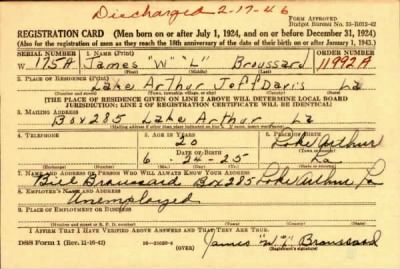 Discharged 2-17-46
Form Approved
Budget Bureau No. 33-R012-42
REGISTRATION CARD (Men born on or after July 1, 1924, and on or before December 31, 1924)
(Also for the registration of men as they reach the 18th anniversary of the date of their birth on or after January 1, 1943.)
SERIAL NUMBER 1. NAME (Print) ORDER NUMBER
W 175A James "W" "L" Broussard 11992A
(First) (Middle) (Last)
2. PLACE OF RESIDENCE (Print)
Lake Arthur Jeff Davis La
(Number and street) (Town, township, village, or city) (County) (State)
[THE PLACE OF RESIDENCE GIVEN ON LINE 2 ABOVE WILL DETERMINE LOCAL BOARD
JURISDICTION; LINE 2 OF REGISTRATION CERTIFICATE WILL BE IDENTICAL]
3. MAILING ADDRESS
Box 285 Lake Arthur La
[Mailing address if other than place indicated on line 2. If same, insert word same]
4. TELEPHONE 5. AGE IN YEARS 6. PLACE OF BIRTH
20 Lake Arthur
DATE OF BIRTH (Town or county)
6 - 24 - 25 La
(Exchange) (Number) (Mo.) (Day) (Yr.) (State or country)
7. NAME AND ADDRESS OF PERSON WHO WILL ALWAYS KNOW YOUR ADDRESS
Broussard Box 285 Lake Arthur La
8. EMPLOYER'S NAME AND ADDRESS
Unemployed
9. PLACE OF EMPLOYMENT OR BUSINESS
(Number and street or R. F. D. number) (Town) (County) (State)
I AFFIRM THAT I HAVE VERIFIED ABOVE ANSWERS AND THAT THEY ARE TRUE.
DSS Form 1 (Rev. 11-16-42) (OVER) James "W" "L" Broussard
(Registrant's signature)